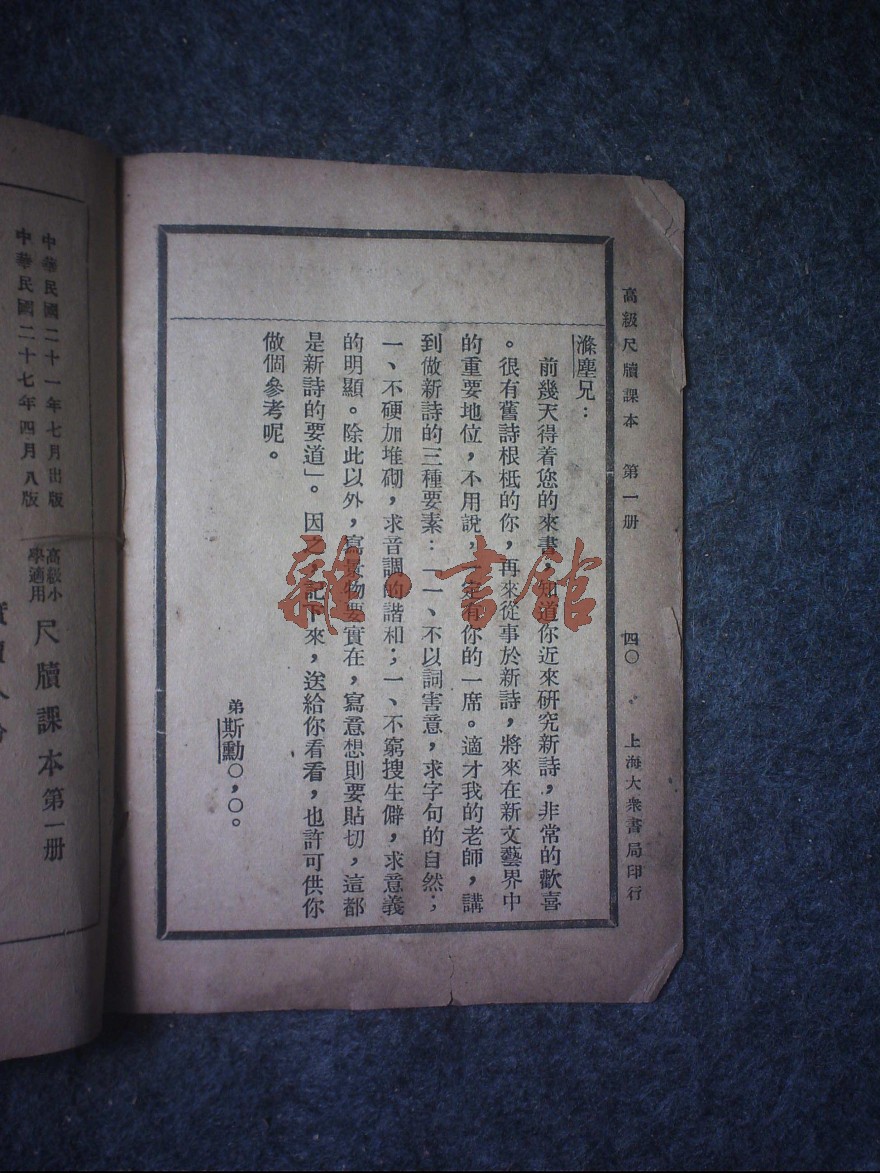 高級尺牘課本 第一册 四〇 上海大衆書局印行
滌塵兄：
前幾天得着您的來書，知道你近來研究新詩，非常的歡喜
。很有舊詩根柢的你，再來從事於新詩，將來在新文藝界中
的重要地位，不用說，定有你的一席。適才我的老師，講
到做新詩的三種要素：「一、不以詞害意，求字句的自然；
一、不硬加堆砌，求音調的諧和；一、不窮搜生僻，求意義
的明顯。除此以外，寫景物要實在，寫意想則要貼切，這都
是新詩的要道」。因之，記下來，送給你看看，也許可供你
做個參考呢。
弟斯勳〇，〇。
雜·書館
中華民國二十一年七月出版
中華民國二十七年四月八版
高級小
學適用
尺牘課本第一册